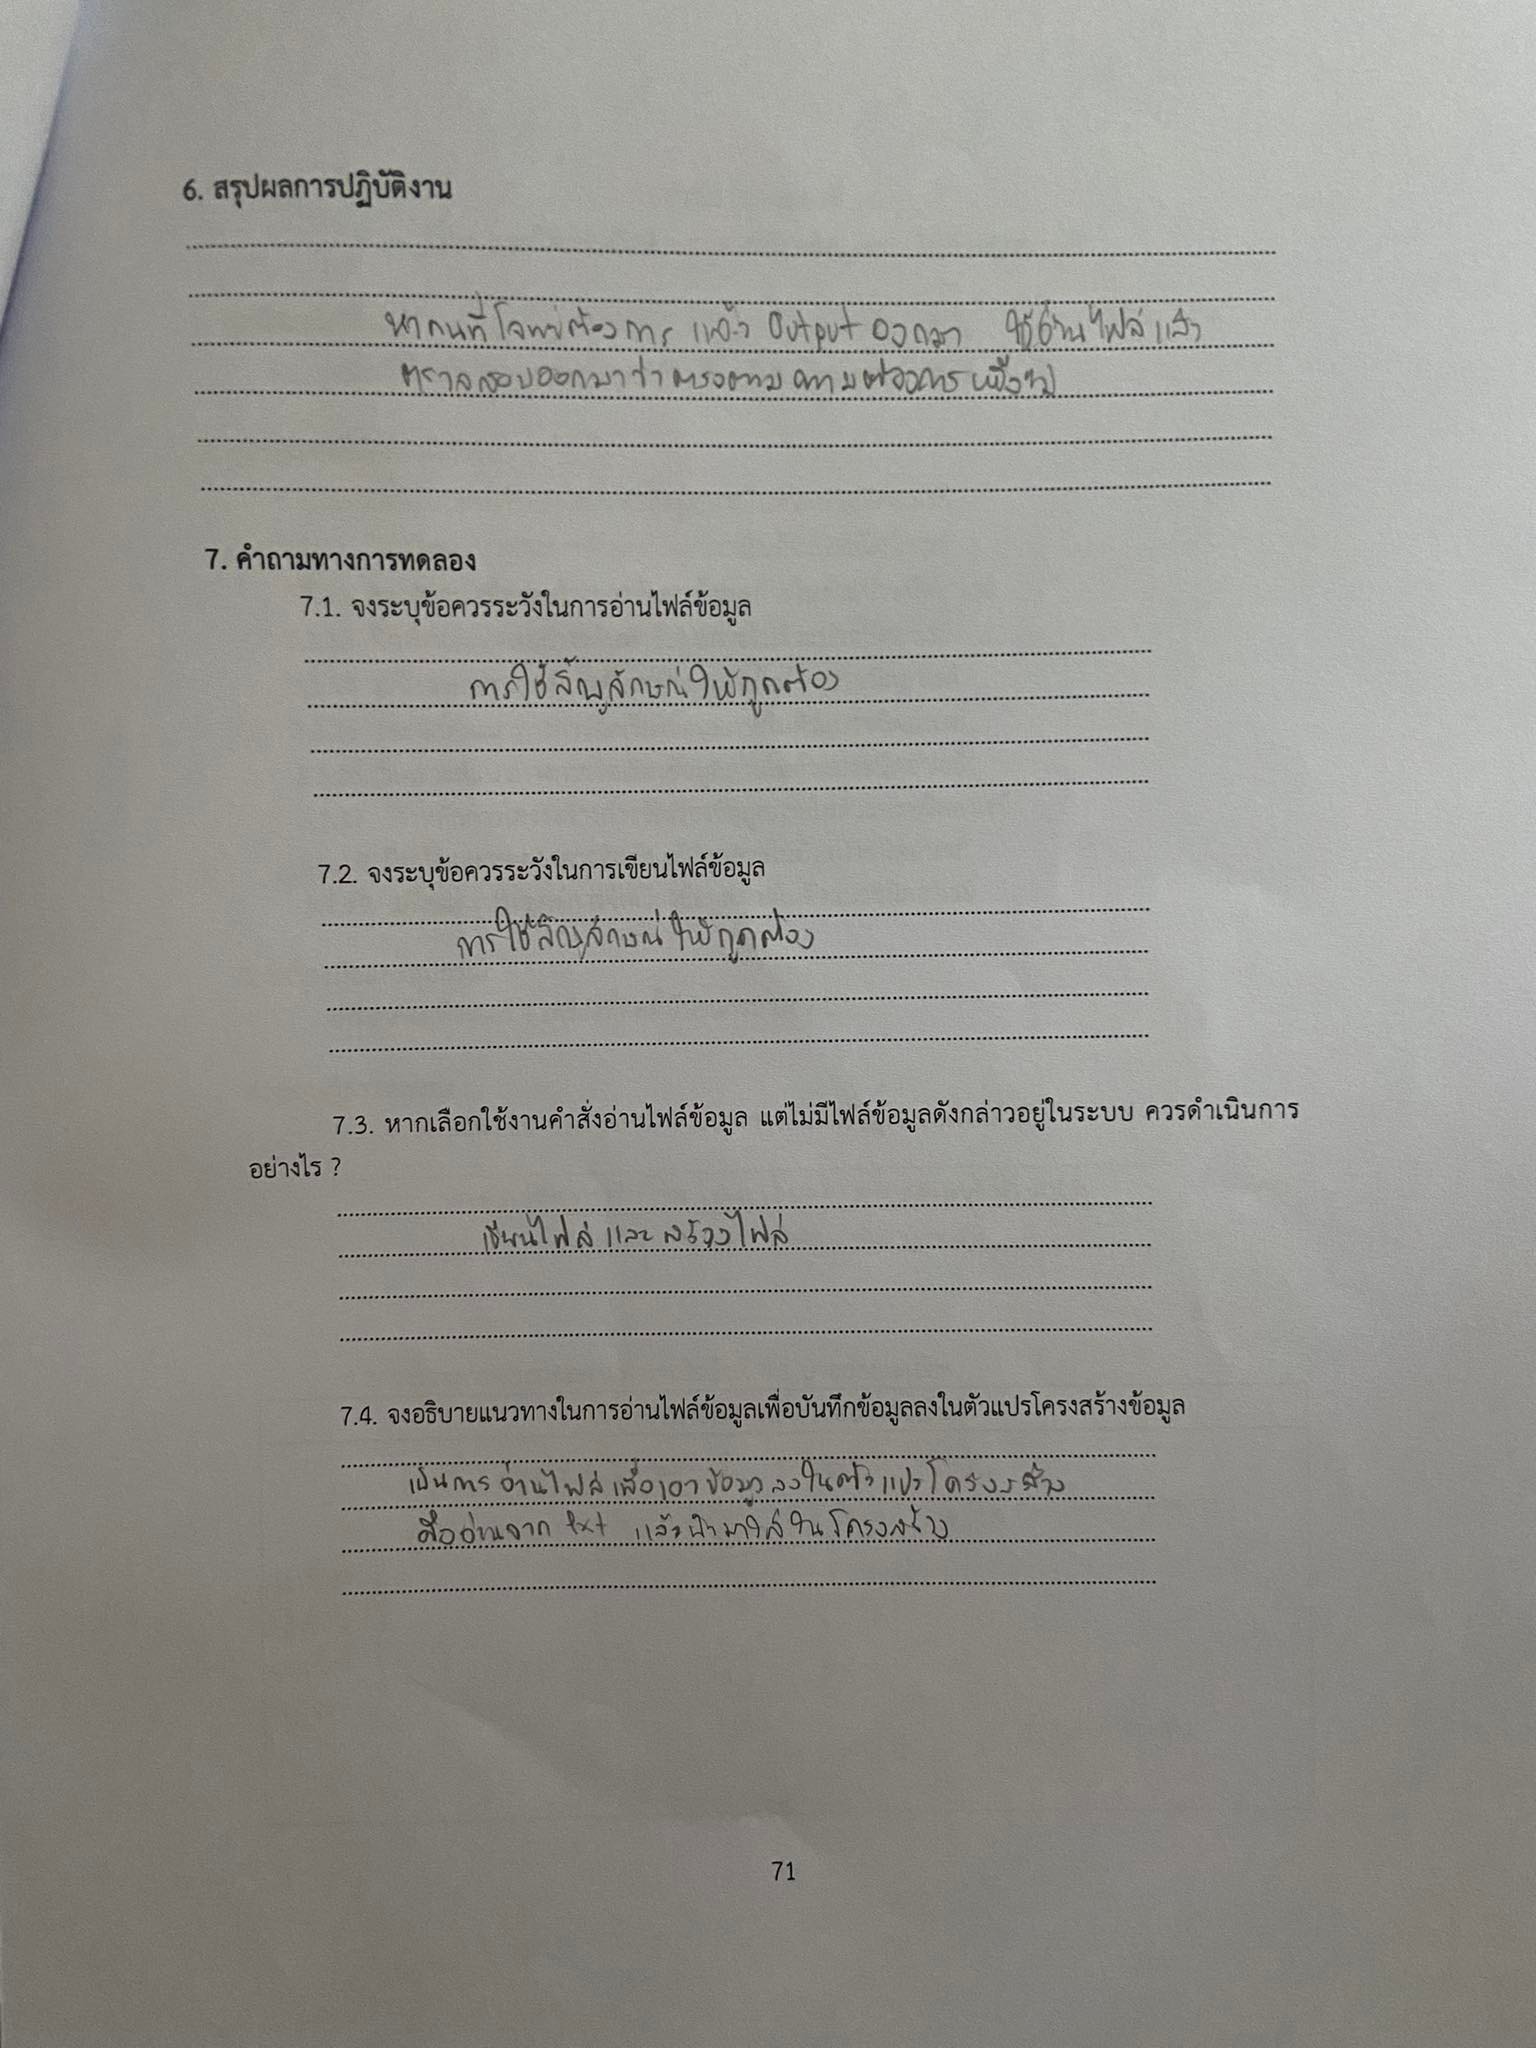 6. สรุปผลการปฏิบัติงาน
หาคนที่โจทย์ต้องการ แล้ว Output ออกมา ใช้อ่านไฟล์แล้ว
ตรวจสอบออกมาว่าตรงตามความต้องการหรือไม่
7. คำถามทางการทดลอง
7.1. จงระบุข้อควรระวังในการอ่านไฟล์ข้อมูล
การใช้สัญลักษณ์ให้ถูกต้อง
7.2. จงระบุข้อควรระวังในการเขียนไฟล์ข้อมูล
การใช้สัญลักษณ์ให้ถูกต้อง
7.3. หากเลือกใช้งานคำสั่งอ่านไฟล์ข้อมูล แต่ไม่มีไฟล์ข้อมูลดังกล่าวอยู่ในระบบ ควรดำเนินการ
อย่างไร ?
เขียนไฟล์ และ สร้างไฟล์
7.4. จงอธิบายแนวทางในการอ่านไฟล์ข้อมูลเพื่อบันทึกข้อมูลลงในตัวแปรโครงสร้างข้อมูล
เป็นการอ่านไฟล์เพื่อเอาข้อมูลลงในตัวแปรโครงสร้าง
คืออ่านจาก txt แล้วนำมาใส่ในโครงสร้าง
71